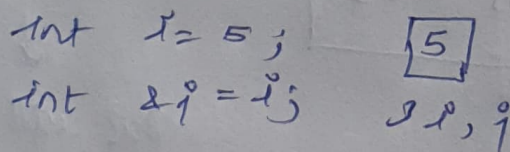 int i = 5; 5
int &j = i; i, j